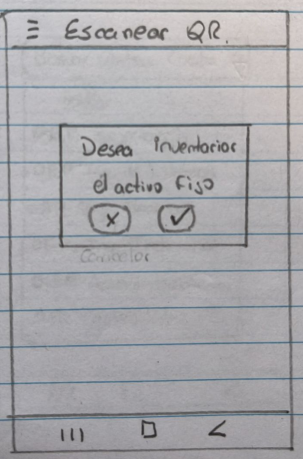 Escanear QR.
Desea inventariar
el activo fijo
Cancelar